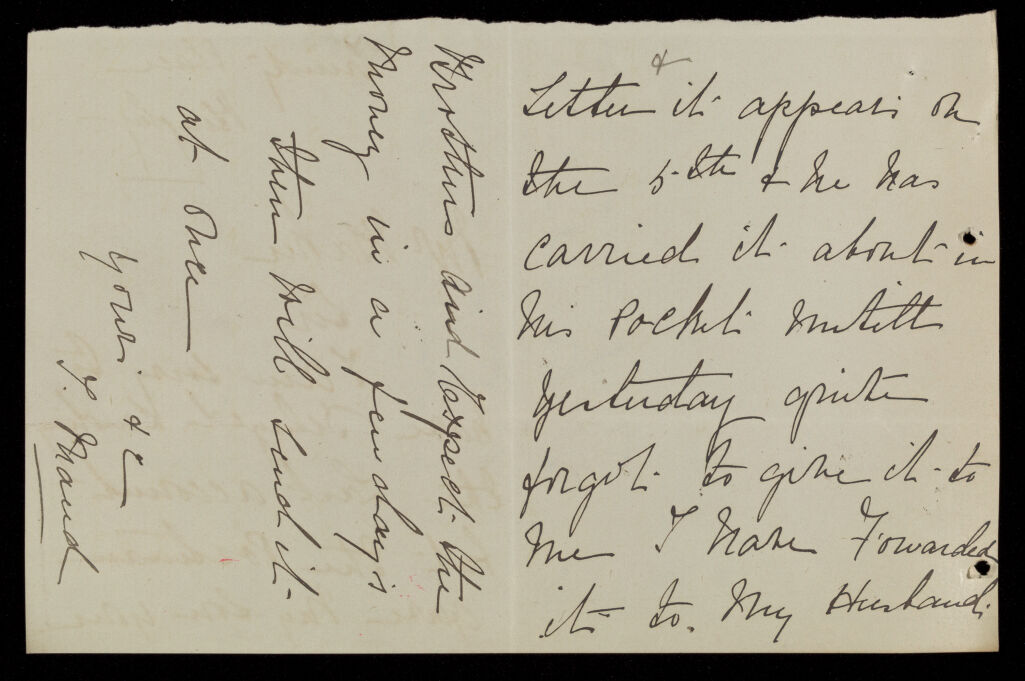 &
Letter it appears on
the 5th & he has
carried it about in
his Pocket untill
yesterday quite
forgot to give it to
me I have Forwarded
it to. My Husband.
Brothers and Expect the
money in a few days
then will send it
at once
yours &c
F. Maud